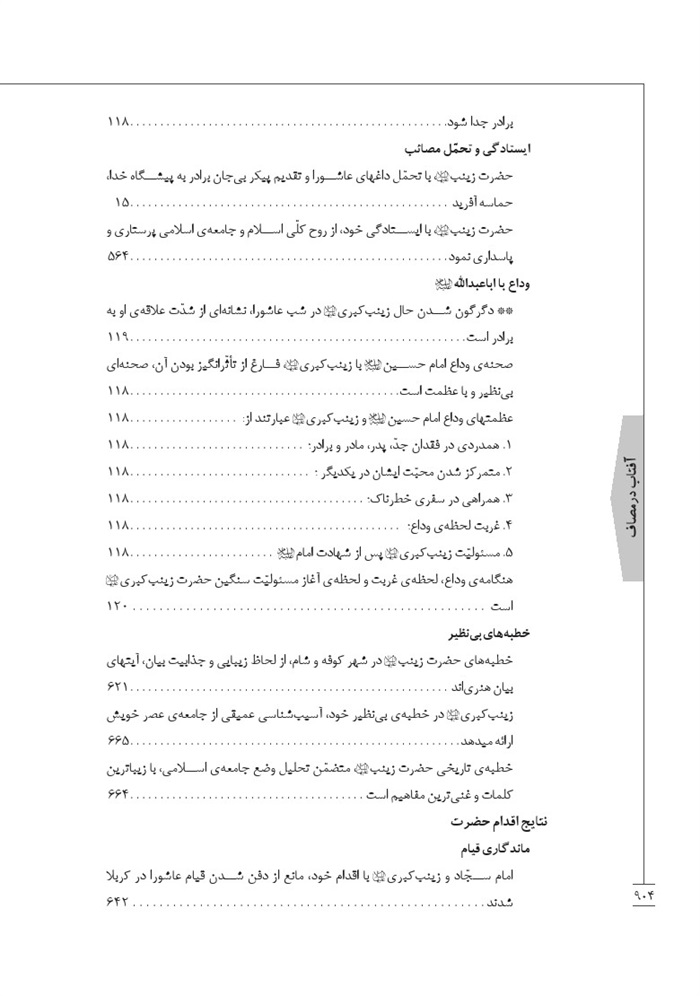 برادر جدا شود ................................................ ۱۱۸
ایستادگی و تحمّل مصائب
حضرت زینب با تحمّل داغهای عاشورا و تقدیم پیکر بی‌جان برادر به پیشگاه خدا،
حماسه آفرید ................................................ ۱۵
حضرت زینب با ایستادگی خود، از روح کلّی اسلام و جامعه‌ی اسلامی پرستاری و
پاسداری نمود ................................................ ۵۶۴
وداع با اباعبدالله
** دگرگون شدن حال زینب‌کبری در شب عاشورا، نشانه‌ای از شدّت علاقه‌ی او به
برادر است ................................................ ۱۱۹
صحنه‌ی وداع امام حسین با زینب‌کبری فارغ از تأثّرانگیز بودن آن، صحنه‌ای
بی‌نظیر و با عظمت است ................................................ ۱۱۸
عظمتهای وداع امام حسین و زینب‌کبری عبارتند از: .................. ۱۱۸
۱. همدردی در فقدان جدّ، پدر، مادر و برادر؛ ........................ ۱۱۸
۲. متمرکز شدن محبّت ایشان در یکدیگر؛ ........................ ۱۱۸
۳. همراهی در سفری خطرناک؛ ................................ ۱۱۸
۴. غربت لحظه‌ی وداع؛ ................................ ۱۱۸
۵. مسئولیّت زینب‌کبری پس از شهادت امام ........................ ۱۱۸
هنگامه‌ی وداع، لحظه‌ی غربت و لحظه‌ی آغاز مسئولیّت سنگین حضرت زینب‌کبری
است ................................................ ۱۲۰
خطبه‌های بی‌نظیر
خطبه‌های حضرت زینب در شهر کوفه و شام، از لحاظ زیبایی و جذابیت بیان، آیتهای
بیان هنری‌اند ................................................ ۶۲۱
زینب‌کبری در خطبه‌ی بی‌نظیر خود، آسیب‌شناسی عمیقی از جامعه‌ی عصر خویش
ارائه میدهد ................................................ ۶۶۵
خطبه‌ی تاریخی حضرت زینب، متضمّن تحلیل وضع جامعه‌ی اسلامی، با زیباترین
کلمات و غنی‌ترین مفاهیم است ................................ ۶۶۴
نتایج اقدام حضرت
ماندگاری قیام
امام سجّاد و زینب‌کبری با اقدام خود، مانع از دفن شدن قیام عاشورا در کربلا
شدند ................................................ ۶۴۲
آفتاب در مصاف
۹۰۴